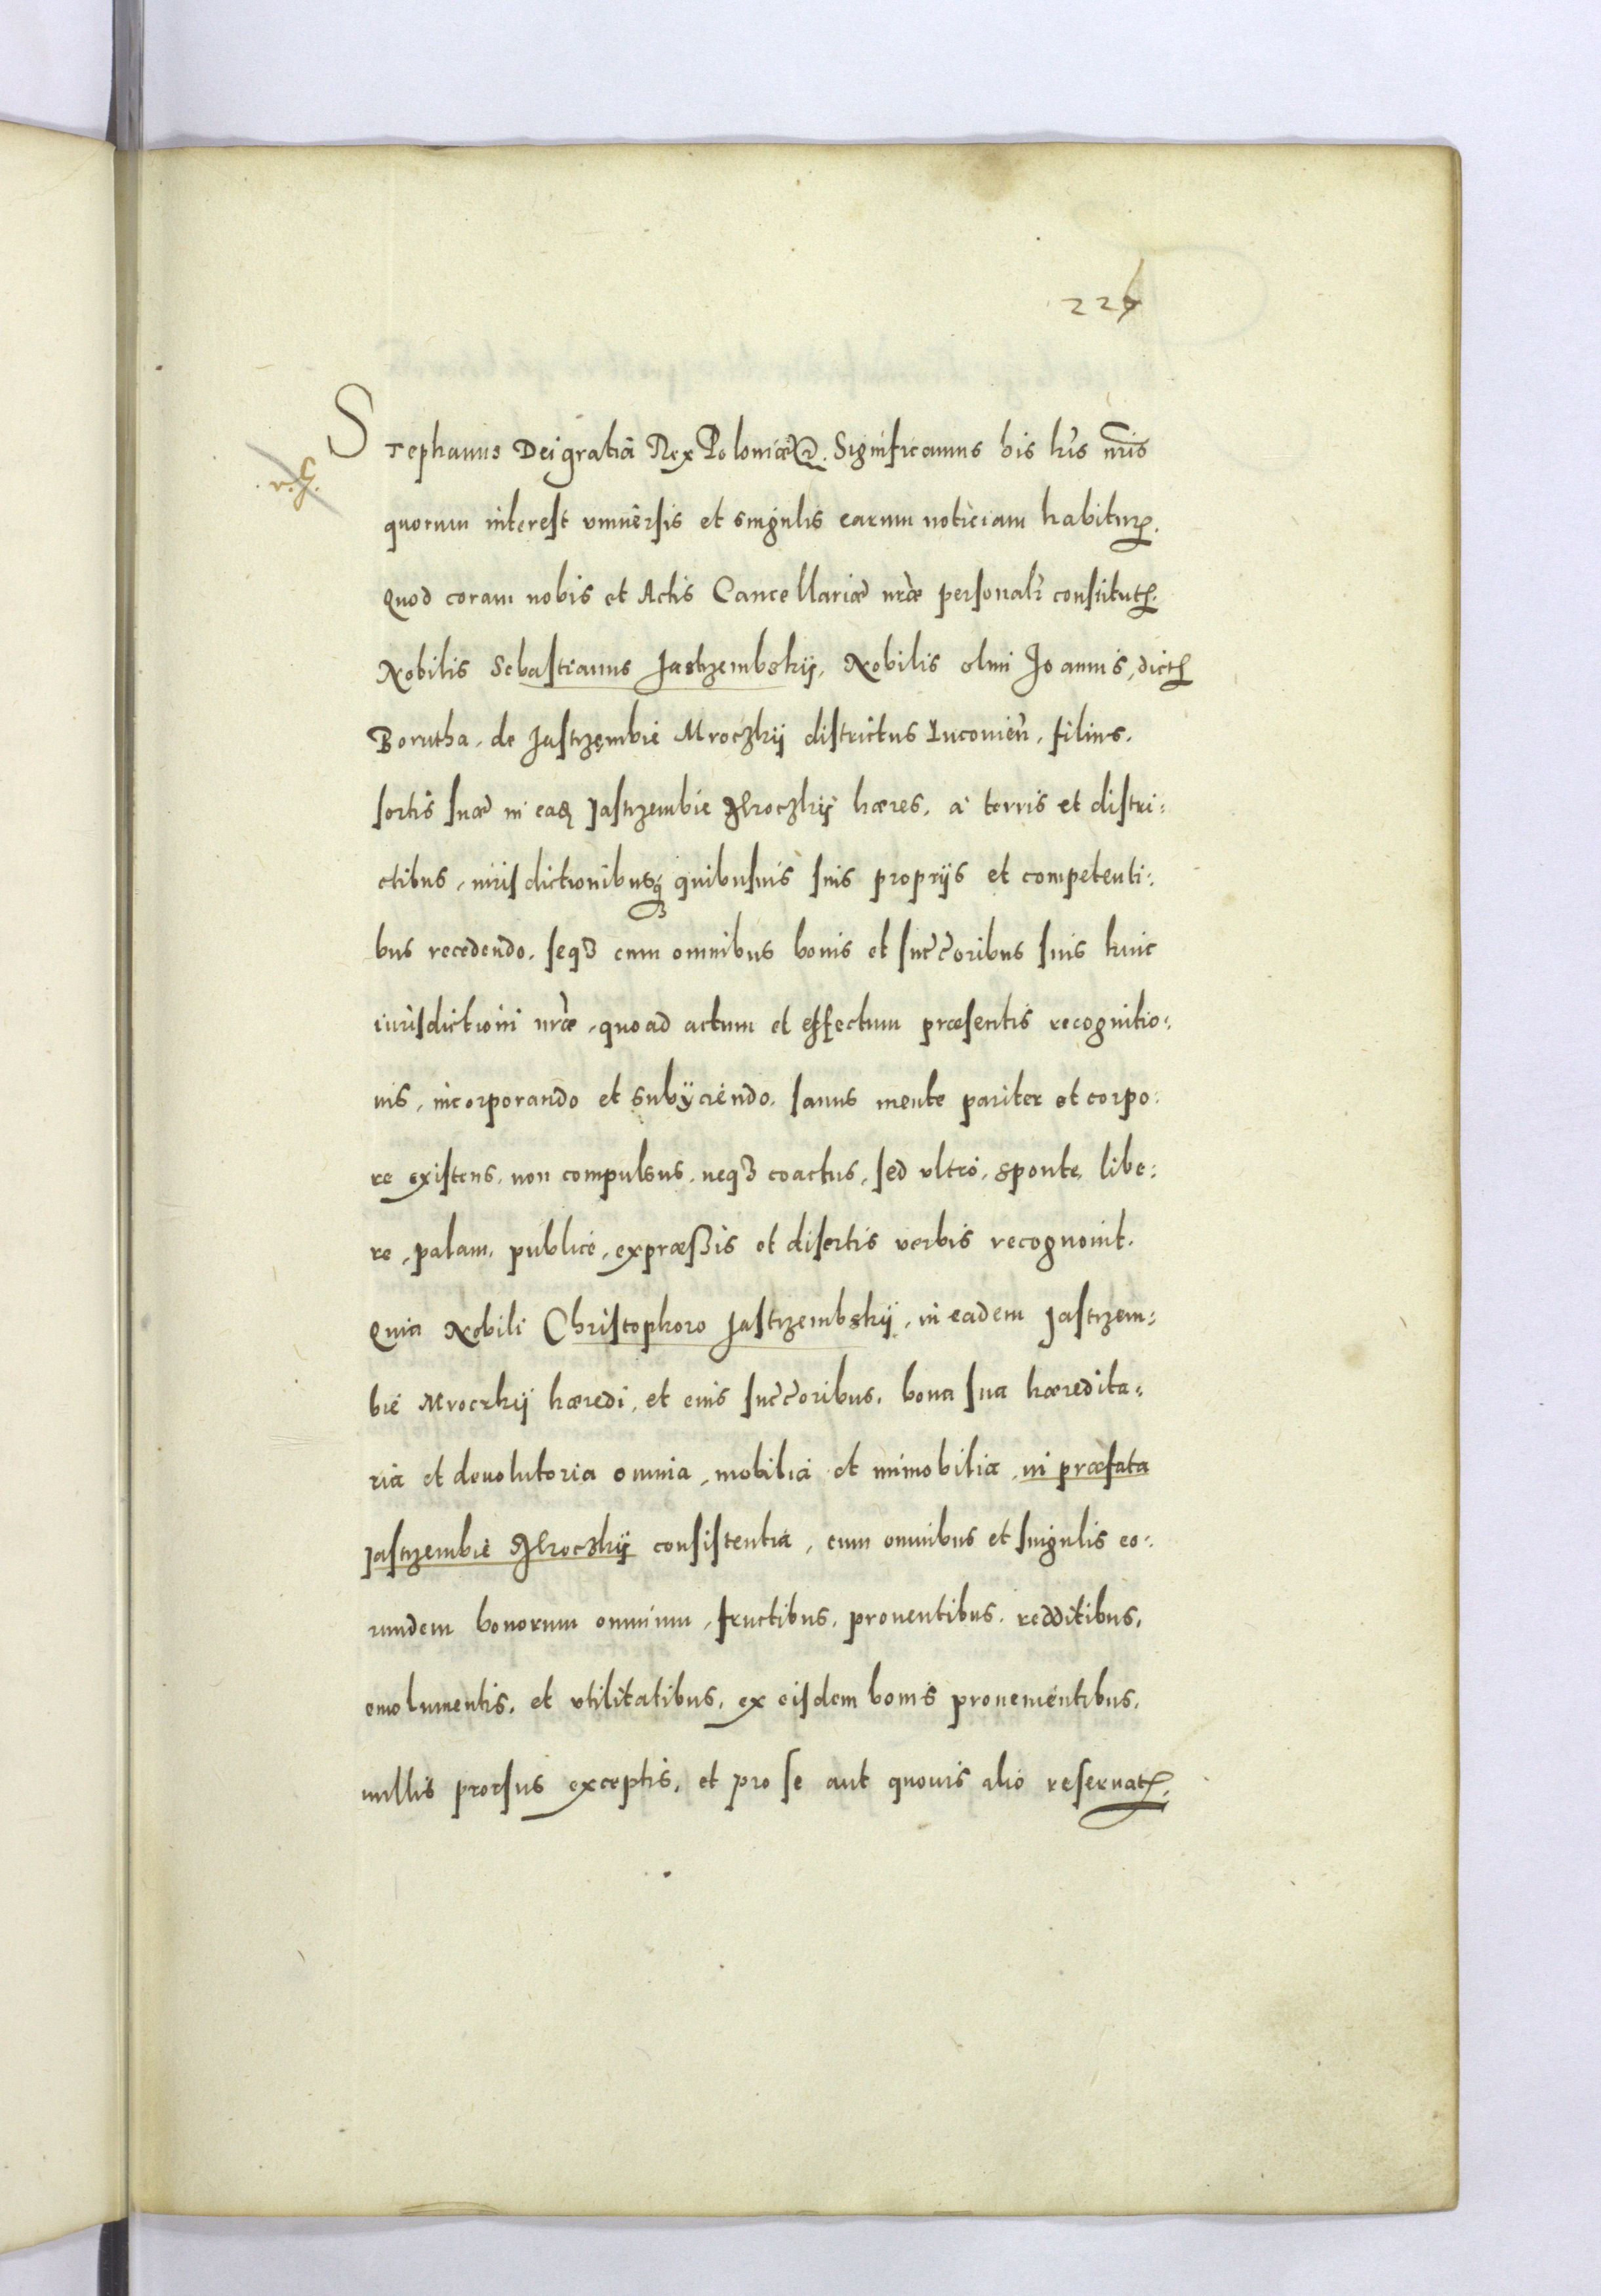 226
Stephanus Dei gratiâ Rex Poloniæ &c. Significamus his lr̃is nr̃is
quorum interest vniuersis et singulis earum noticiam habituris.
Quod coram nobis et Actis Cancellariæ nr̃æ personalr̃ constitutus
Nobilis Sebastianus Jastrzembskij, Nobilis olim Joannis, dictus
Borutha, de Jastrzęmbie Mroczkij districtus Luconieñ, filius,
sortis suæ in eadem Jastrzembie Mroczkij hæres, à terris et distri:
ctibus, iurisdictionibusq3 quibusuis suis proprijs et competenti:
bus recedendo, seq3 cum omnibus bonis et succ̃oribus suis huic
iurisdictioni nr̃æ, quoad actum et effectum præsentis recognitio:
nis, incorporando et subijciendo, sanus mente pariter et corpo:
re existens, non compulsus, neq3 coactus, sed vltrò, sponte, libe:
re, palam, publicè, expræßis et disertis verbis recognouit.
Quia Nobili Christophoro Jastrzembskij, in eadem Jastrzem:
bie Mroczkij hæredi, et eius succ̃oribus, bona sua hæredita:
ria et deuolutoria omnia, mobilia et immobilia, in præfata
Jastrzembie Mroczkij consistentia, cum omnibus et singulis eo:
rundem bonorum omnium, fructibus, prouentibus, redditibus,
emolumentis, et vtilitatibus, ex eisdem bonis prouenientibus,
nullis prorsus exceptis, et pro se aut quouis alio reseruatis.